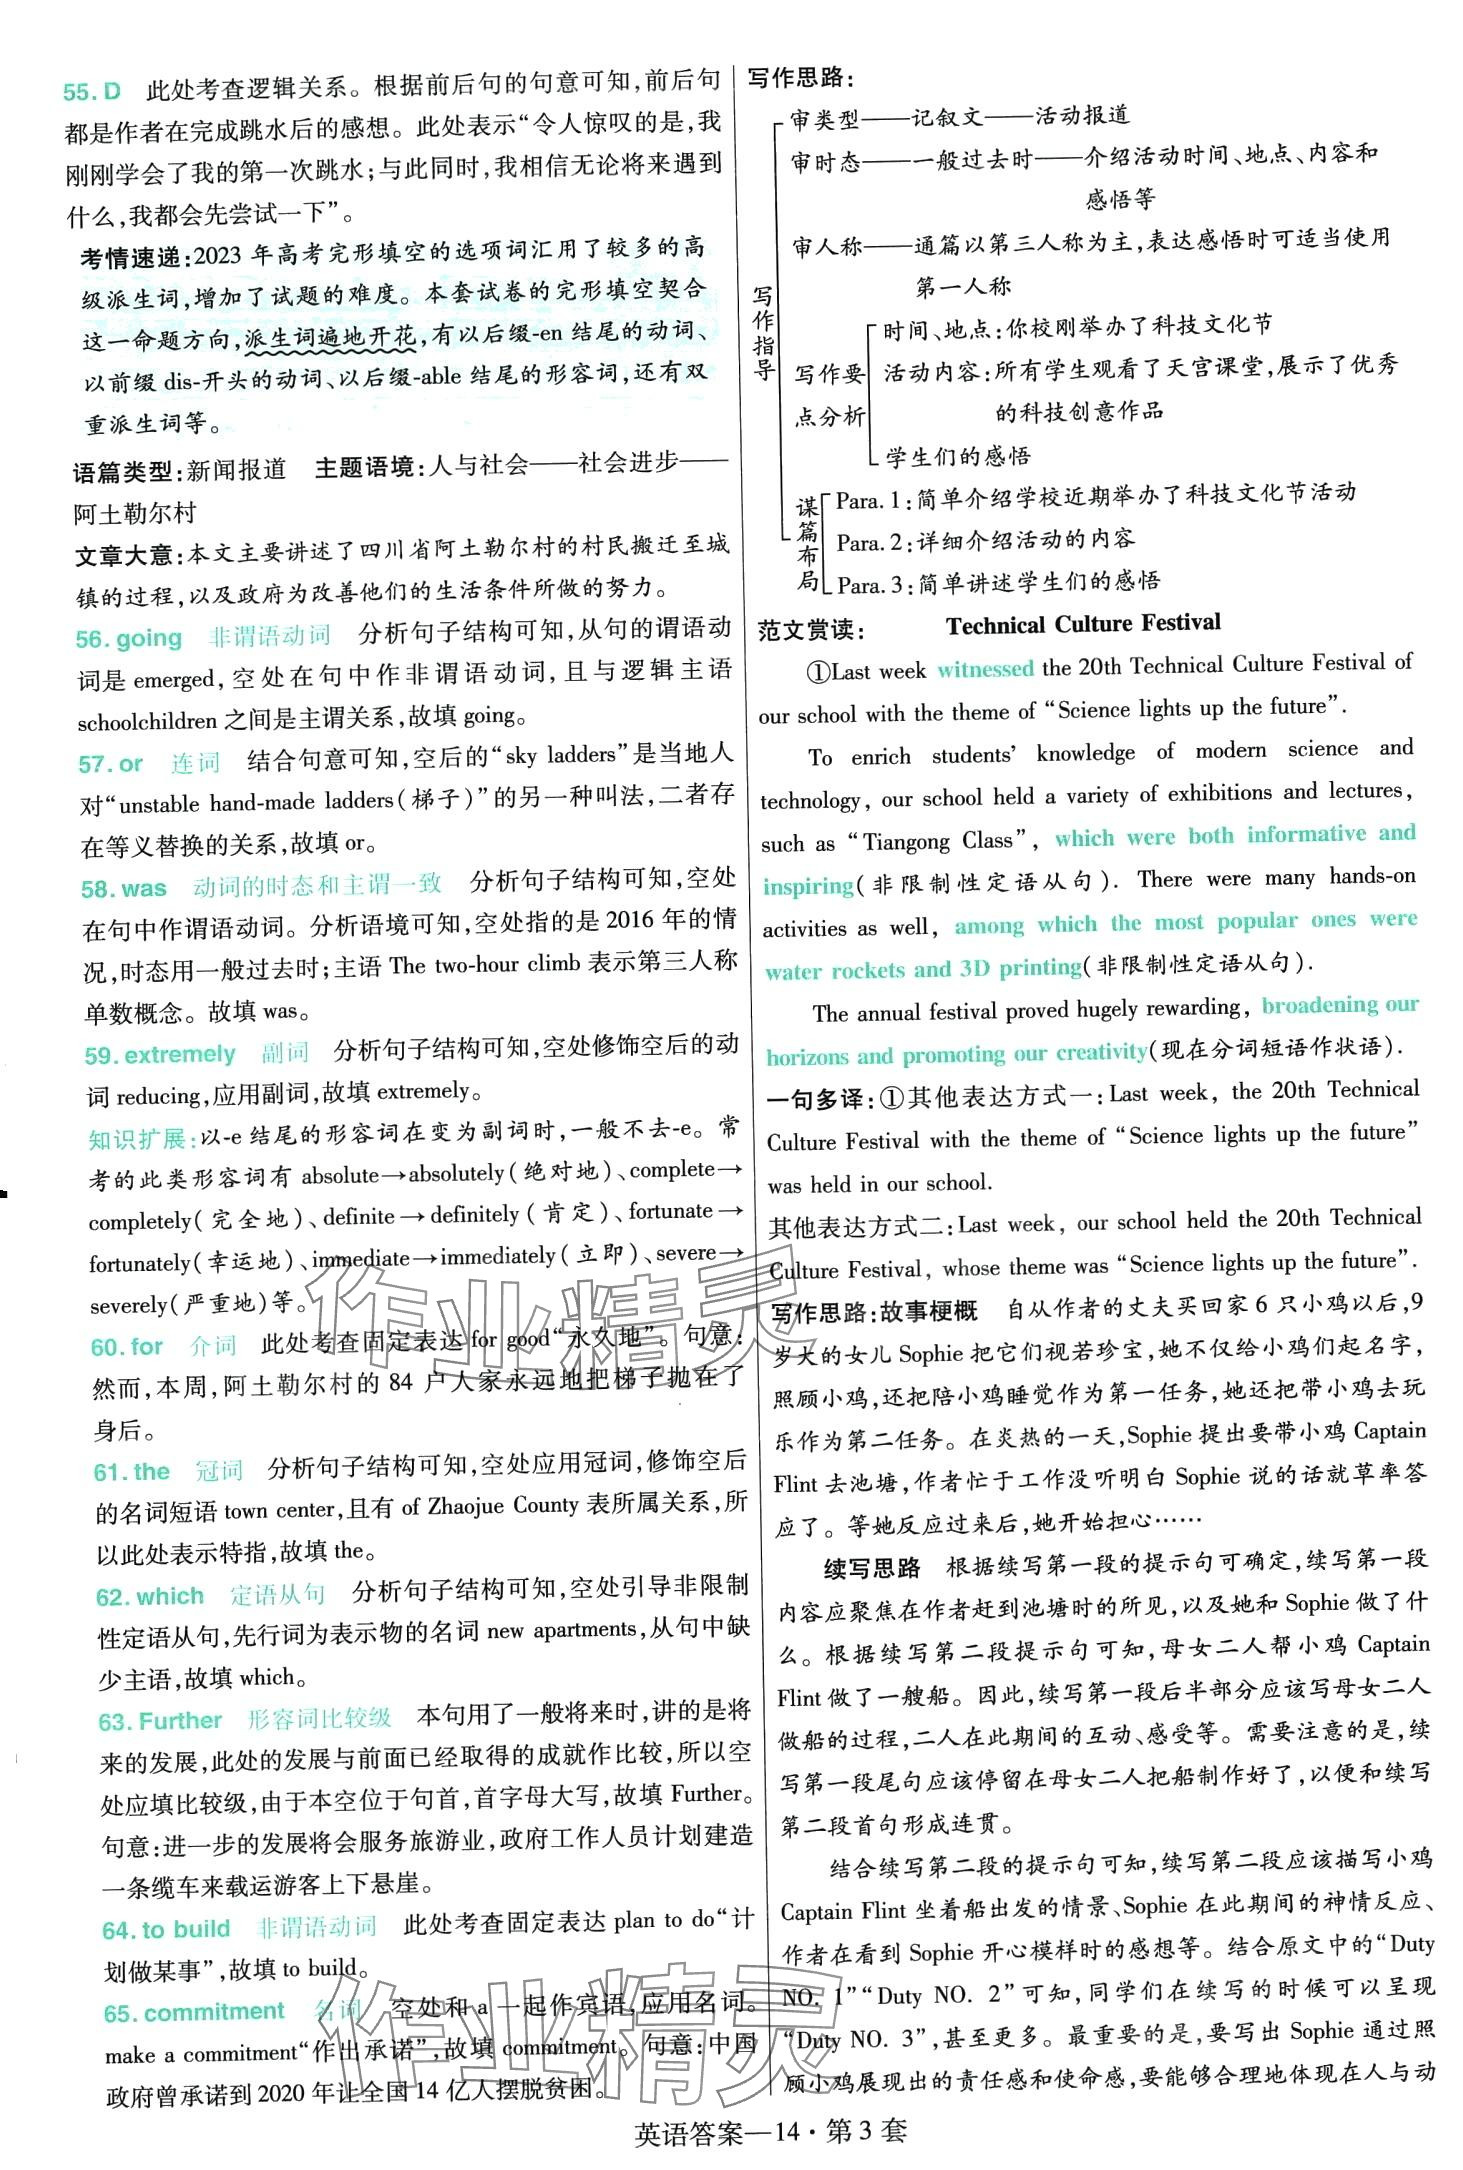 55. D　此处考查逻辑关系。根据前后句的句意可知,前后句
都是作者在完成跳水后的感想。此处表示“令人惊叹的是,我
刚刚学会了我的第一次跳水;与此同时,我相信无论将来遇到
什么,我都会先尝试一下”。
考情速递:2023 年高考完形填空的选项词汇用了较多的高
级派生词,增加了试题的难度。本套试卷的完形填空契合
这一命题方向,派生词遍地开花,有以后缀-en 结尾的动词、
以前缀 dis-开头的动词、以后缀-able 结尾的形容词,还有双
重派生词等。
语篇类型:新闻报道　主题语境:人与社会——社会进步——
阿土勒尔村
文章大意:本文主要讲述了四川省阿土勒尔村的村民搬迁至城
镇的过程,以及政府为改善他们的生活条件所做的努力。
56. going　非谓语动词　分析句子结构可知,从句的谓语动
词是 emerged,空处在句中作非谓语动词,且与逻辑主语
schoolchildren 之间是主谓关系,故填 going。
57. or　连词　结合句意可知,空后的“sky ladders”是当地人
对“unstable hand-made ladders(梯子)”的另一种叫法,二者存
在等义替换的关系,故填 or。
58. was　动词的时态和主谓一致　分析句子结构可知,空处
在句中作谓语动词。分析语境可知,空处指的是 2016 年的情
况,时态用一般过去时;主语 The two-hour climb 表示第三人称
单数概念。故填 was。
59. extremely　副词　分析句子结构可知,空处修饰空后的动
词 reducing,应用副词,故填 extremely。
知识扩展:以-e 结尾的形容词在变为副词时,一般不去-e。常
考的此类形容词有 absolute→absolutely(绝对地)、complete→
completely(完全地)、definite→definitely(肯定)、fortunate→
fortunately(幸运地)、immediate→immediately(立即)、severe→
severely(严重地)等。
60. for　介词　此处考查固定表达 for good“永久地”。句意:
然而,本周,阿土勒尔村的 84 户人家永远地把梯子抛在了
身后。
61. the　冠词　分析句子结构可知,空处应用冠词,修饰空后
的名词短语 town center,且有 of Zhaojue County 表所属关系,所
以此处表示特指,故填 the。
62. which　定语从句　分析句子结构可知,空处引导非限制
性定语从句,先行词为表示物的名词 new apartments,从句中缺
少主语,故填 which。
63. Further　形容词比较级　本句用了一般将来时,讲的是将
来的发展,此处的发展与前面已经取得的成就作比较,所以空
处应填比较级,由于本空位于句首,首字母大写,故填 Further。
句意:进一步的发展将会服务旅游业,政府工作人员计划建造
一条缆车来载运游客上下悬崖。
64. to build　非谓语动词　此处考查固定表达 plan to do“计
划做某事”,故填 to build。
65. commitment　名词　空处和 a 一起作宾语,应用名词。
make a commitment“作出承诺”,故填 commitment。句意:中国
政府曾承诺到 2020 年让全国 14 亿人摆脱贫困。
写作思路:
写作指导
审类型——记叙文——活动报道
审时态——一般过去时——介绍活动时间、地点、内容和
感悟等
审人称——通篇以第三人称为主,表达感悟时可适当使用
第一人称
写作要点分析
时间、地点:你校刚举办了科技文化节
活动内容:所有学生观看了天宫课堂,展示了优秀
的科技创意作品
学生们的感悟
谋篇布局
Para. 1:简单介绍学校近期举办了科技文化节活动
Para. 2:详细介绍活动的内容
Para. 3:简单讲述学生们的感悟
范文赏读:　Technical Culture Festival
①Last week witnessed the 20th Technical Culture Festival of
our school with the theme of “Science lights up the future”.
To enrich students’ knowledge of modern science and
technology, our school held a variety of exhibitions and lectures,
such as “Tiangong Class”, which were both informative and
inspiring(非限制性定语从句). There were many hands-on
activities as well, among which the most popular ones were
water rockets and 3D printing(非限制性定语从句).
The annual festival proved hugely rewarding, broadening our
horizons and promoting our creativity(现在分词短语作状语).
一句多译:①其他表达方式一:Last week, the 20th Technical
Culture Festival with the theme of “Science lights up the future”
was held in our school.
其他表达方式二:Last week, our school held the 20th Technical
Culture Festival, whose theme was “Science lights up the future”.
写作思路:故事梗概　自从作者的丈夫买回家 6 只小鸡以后,9
岁大的女儿 Sophie 把它们视若珍宝,她不仅给小鸡们起名字,
照顾小鸡,还把陪小鸡睡觉作为第一任务,她还把带小鸡去玩
乐作为第二任务。在炎热的一天,Sophie 提出要带小鸡 Captain
Flint 去池塘,作者忙于工作没听明白 Sophie 说的话就草率答
应了。等她反应过来后,她开始担心……
续写思路　根据续写第一段的提示句可确定,续写第一段
内容应聚焦在作者赶到池塘时的所见,以及她和 Sophie 做了什
么。根据续写第二段提示句可知,母女二人帮小鸡 Captain
Flint 做了一艘船。因此,续写第一段后半部分应该写母女二人
做船的过程,二人在此期间的互动、感受等。需要注意的是,续
写第一段尾句应该停留在母女二人把船制作好了,以便和续写
第二段首句形成连贯。
结合续写第二段的提示句可知,续写第二段应该描写小鸡
Captain Flint 坐着船出发的情景、Sophie 在此期间的神情反应、
作者在看到 Sophie 开心模样时的感想等。结合原文中的“Duty
NO. 1”“Duty NO. 2”可知,同学们在续写的时候可以呈现
“Duty NO. 3”,甚至更多。最重要的是,要写出 Sophie 通过照
顾小鸡展现出的责任感和使命感,要能够合理地体现在人与动
作业精灵
作业精灵
英语答案—14·第 3 套